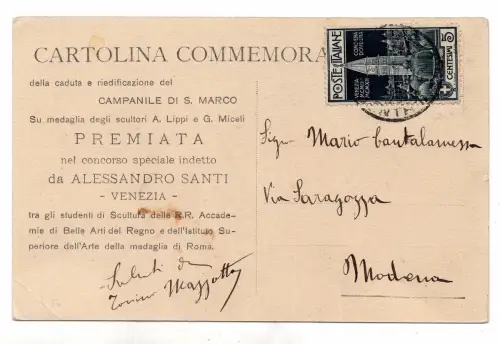 CARTOLINA COMMEMORA
della caduta e riedificazione del
CAMPANILE DI S. MARCO
Su medaglia degli scultori A. Lippi e G. Miceli
PREMIATA
nel concorso speciale indetto
da ALESSANDRO SANTI
- VENEZIA -
tra gli studenti di Scultura delle R.R. Accade-
mie di Belle Arti del Regno e dell'Istituto Su-
periore dell'Arte della medaglia di Roma.
Saluti da
Mazzotto
POSTE ITALIANE
CENTESIMI 5
Sigr Mario Cantalamessa
Via Saragozza
Modena